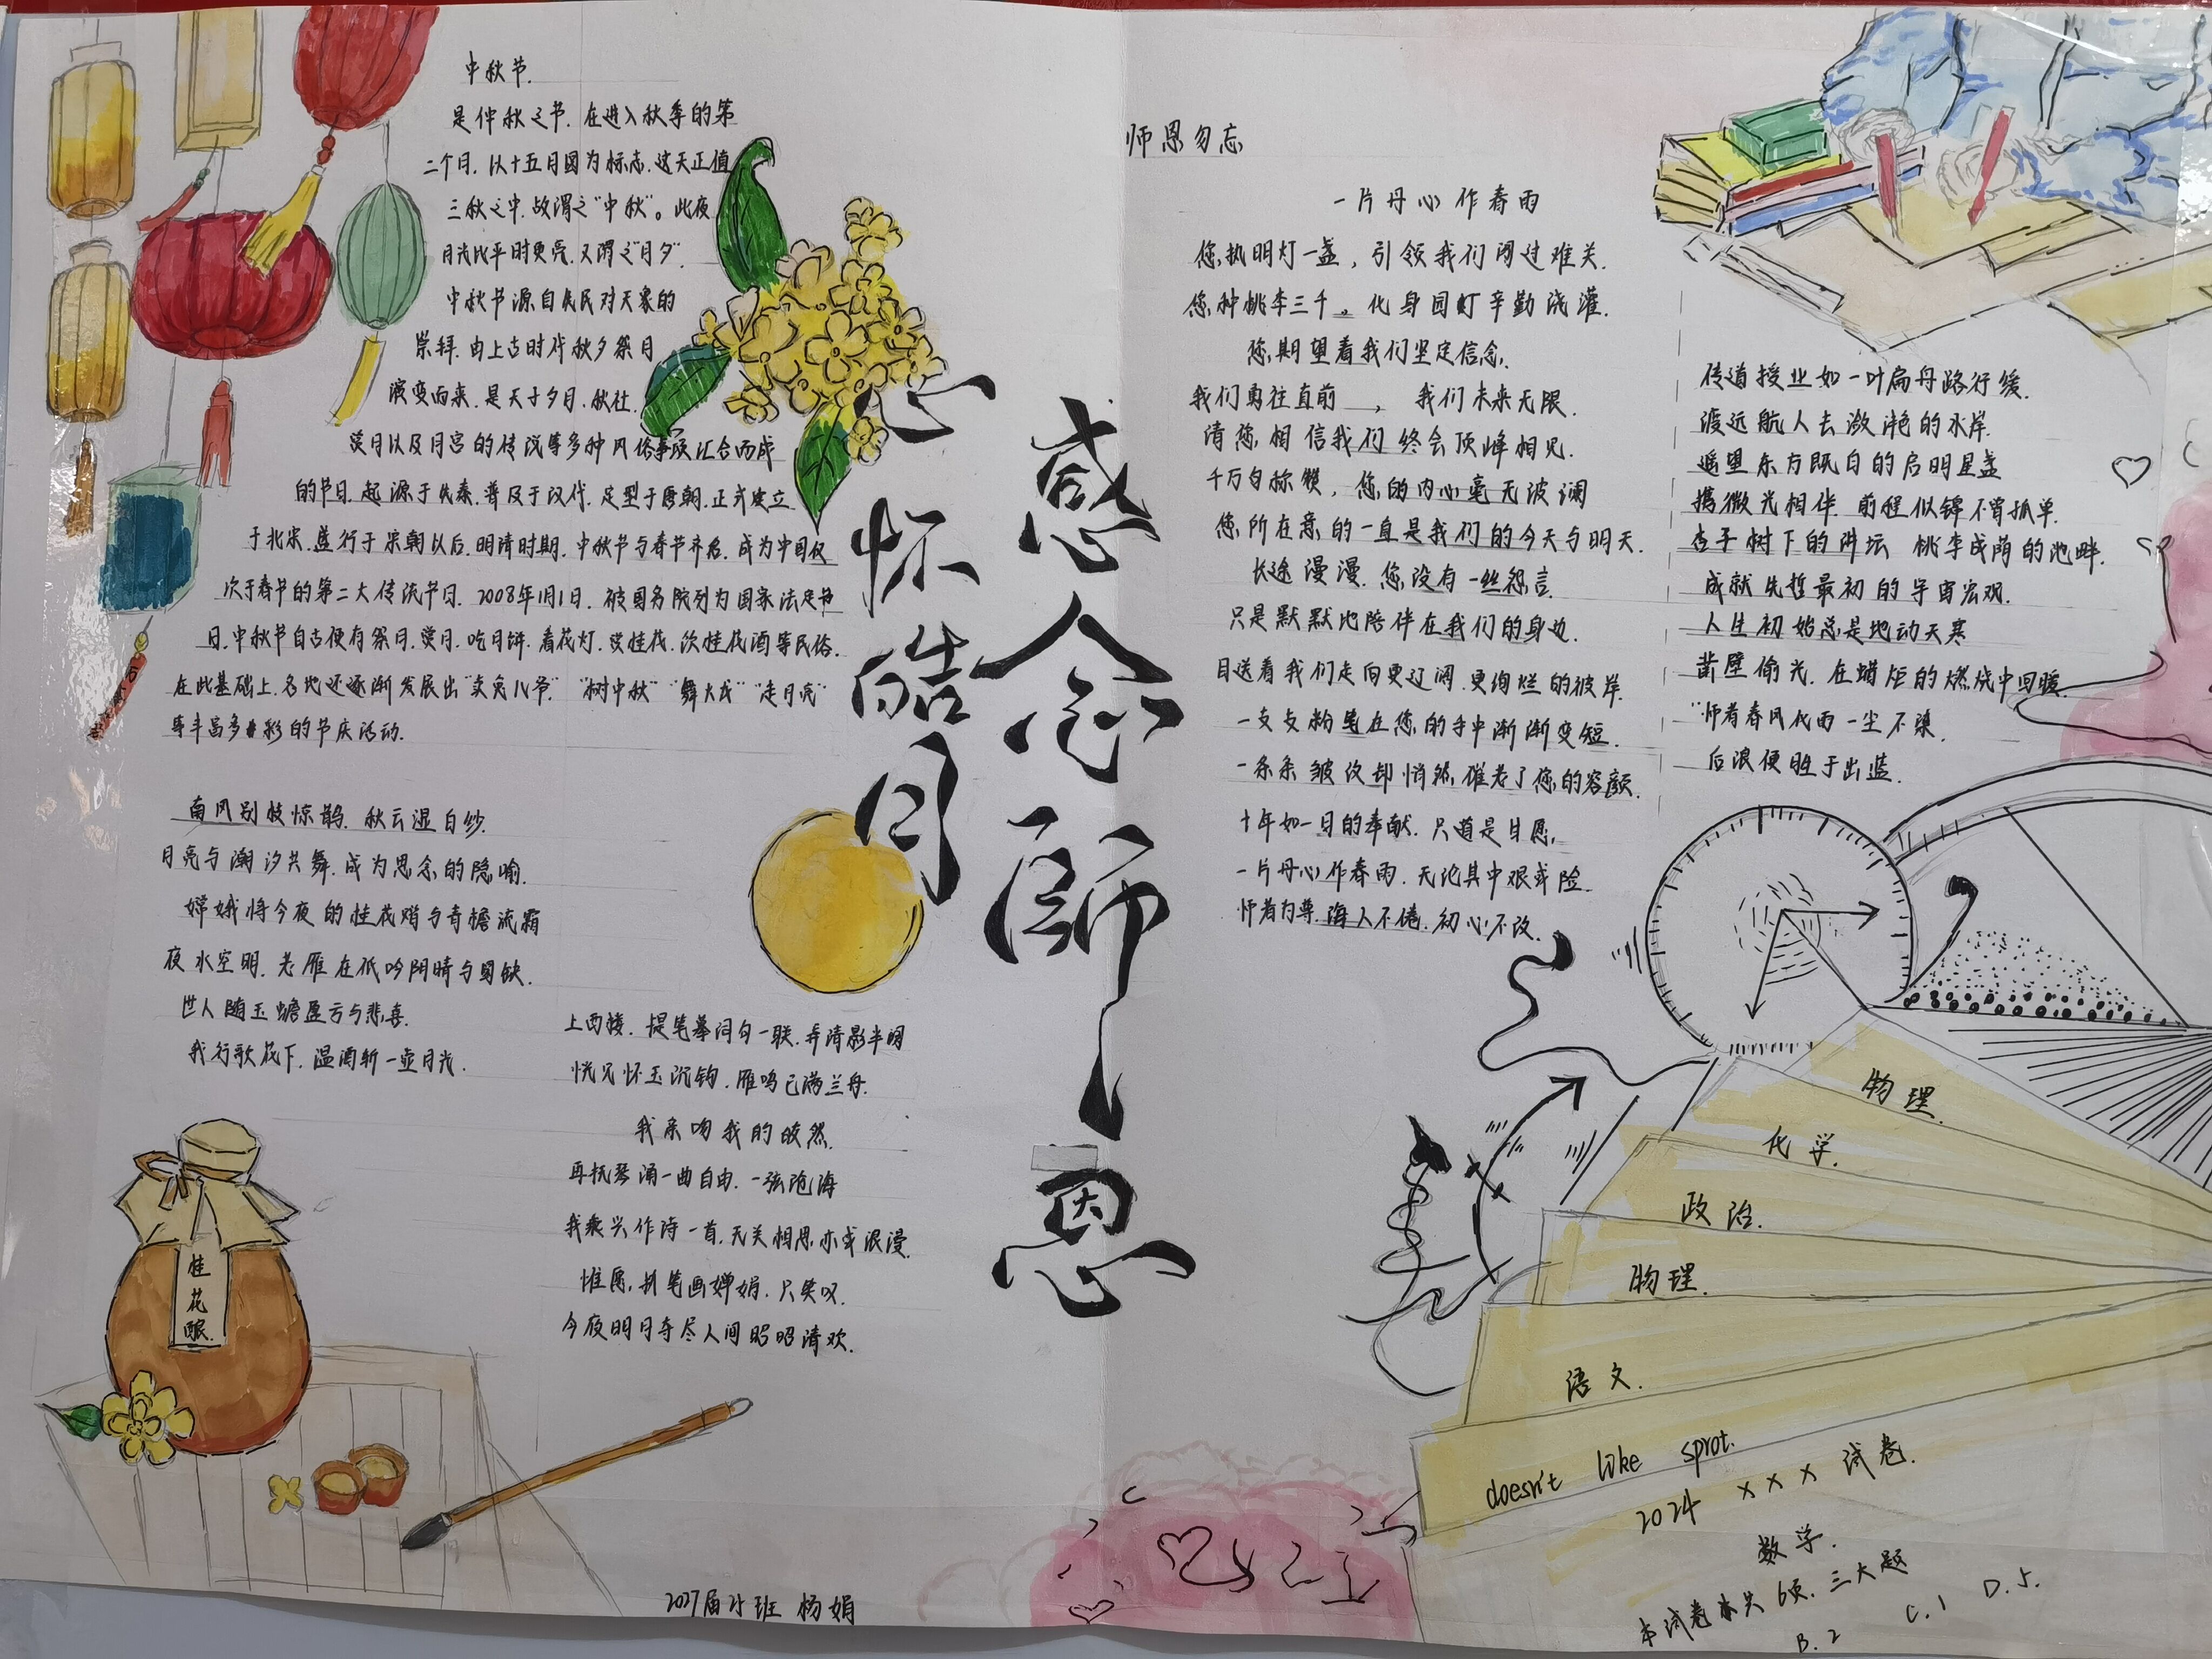 中秋节.
是仲秋之节.在进入秋季的第
二个月.以十五月圆为标志.这天正值
三秋之中.故谓之"中秋"。此夜
月光比平时更亮.又谓之"月夕".
中秋节源自先民对天象的
崇拜.由上古时代秋夕祭月
演变而来.是天子夕月.秋社.
赏月以及月宫的传说等多种风俗事项汇合而成
的节日.起源于先秦.普及于汉代.定型于唐朝.正式建立
于北宋.盛行于宋朝以后.明清时期.中秋节与春节齐名.成为中国仅
次于春节的第二大传流节日.2008年1月1日.被国务院列为国家法定节
日.中秋节自古便有祭月.赏月.吃月饼.看花灯.赏桂花.饮桂花酒等民俗.
在此基础上.各地还逐渐发展出"卖兔儿爷""树中秋""舞火龙""走月亮"
等丰富多彩的节庆活动.
南风别枝惊鹊.秋云湿白纱.
月亮与潮汐共舞.成为思念的隐喻.
嫦娥将今夜的桂花赠与青檐流霜
夜水空明.老雁在低吟阴晴与圆缺.
世人随玉蟾盈亏与悲喜.
我行歌花下.温酒斩一壶月光.
上西楼.提笔摹词句一联.弄清影半阕
恍见怀玉沉钩.雁鸣已满兰舟.
我亲吻我的皎然.
再抚琴涌一曲自由.一弦沧海
我乘兴作诗一首.无关相思亦或浪漫.
惟愿.执笔画婵娟.只笑叹.
今夜明月夺尽人间昭昭清欢.
桂花酿.
2027届 班 杨娟
心怀皓月
感念师恩
师恩勿忘
一片丹心作春雨
您执明灯一盏，引领我们闯过难关.
您种桃李三千。化身园丁辛勤浇灌.
您期望着我们坚定信念.
我们勇往直前，我们未来无限.
请您相信我们终会顶峰相见.
千万句称赞，您的内心毫无波澜
您所在意的一直是我们的今天与明天.
长途漫漫.您没有一丝怨言
只是默默地陪伴在我们的身边.
目送着我们走向更辽阔.更绚烂的彼岸.
一支支粉笔在您的手中渐渐变短.
一条条皱纹却悄然催老了您的容颜.
十年如一日的奉献.只道是甘愿.
一片丹心作春雨.无论其中艰或险.
师者为尊.诲人不倦.初心不改.
传道授业如一叶扁舟路行缓.
渡远航人去潋滟的水岸.
遥望东方既白的启明星盏
携微光相伴.前程似锦不曾孤单.
杏子树下的讲坛 桃李成荫的池畔.
成就先哲最初的宇宙宏观.
人生初始总是地动天寒
凿壁偷光.在蜡炬的燃烧中回暖.
"师者春风化雨一尘不染.
后浪便胜于出蓝.
物理.
化学.
政治.
物理.
语文.
doesn't like sprot.
2024 xxx 试卷.
数学.
本试卷共6页.三大题
B.2 C.1 D.5.